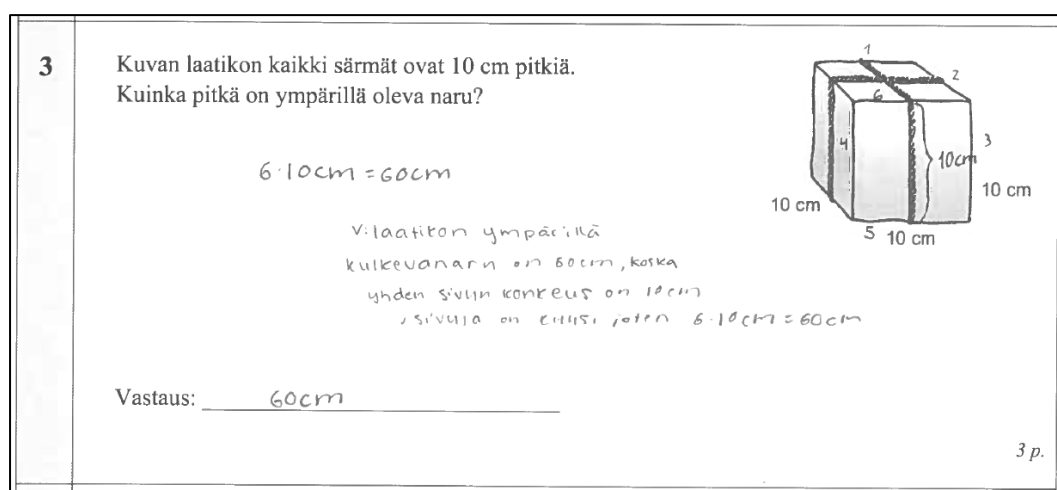 3
Kuvan laatikon kaikki särmät ovat 10 cm pitkiä.
Kuinka pitkä on ympärillä oleva naru?
1
2
6
4
3
10cm
10 cm
10 cm
5 10 cm
6·10cm=60cm
V: laatikon ympärillä
kulkevanaru on 60cm, koska
yhden sivun korkeus on 10cm
, sivuja on kuusi joten 6·10cm=60cm
Vastaus: 60cm
3 p.